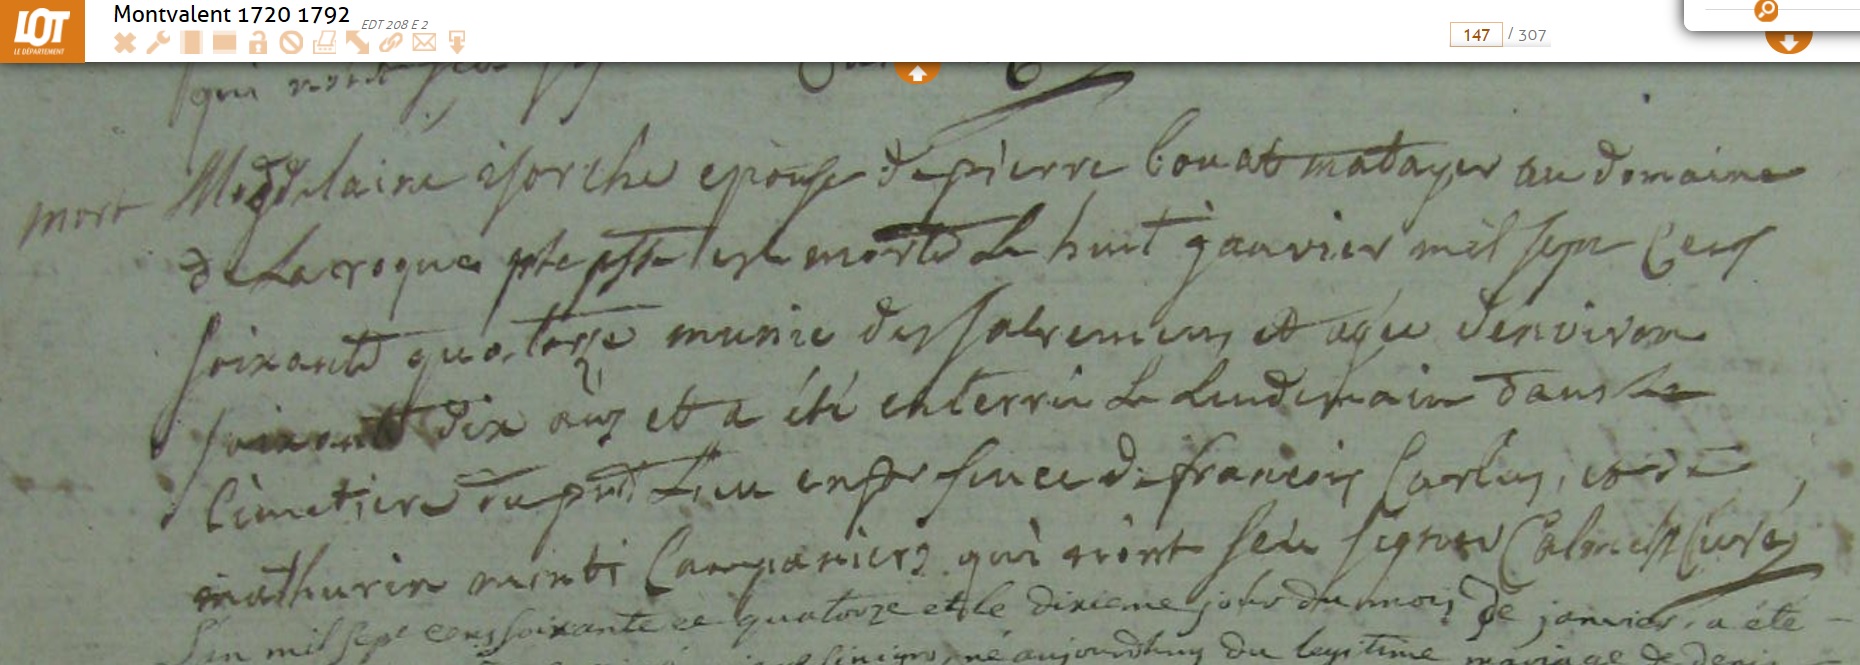 LOT
LE DÉPARTEMENT
Montvalent 1720 1792
EDT 208 E 2
147 / 307
qui n'ont
mort
Magdelaine epouse de pierre bouat matayer au domaine
de Laroque est morte Le huit janvier mil sept Cens
soixante quatorze munie des sacremens et agée denviron
soixante dix ans et a été enterrée Le Lendemain dans Le
Cimetiere du pnt Lieu en presence de francois Carlus, et de
mathurin Campaniers qui n'ont seu signer Calmels Curé
L'an mil sept cens soixante et quatorze et le dixieme jour du mois de janvier, a été
né aujourdhuy du legitime mariage de